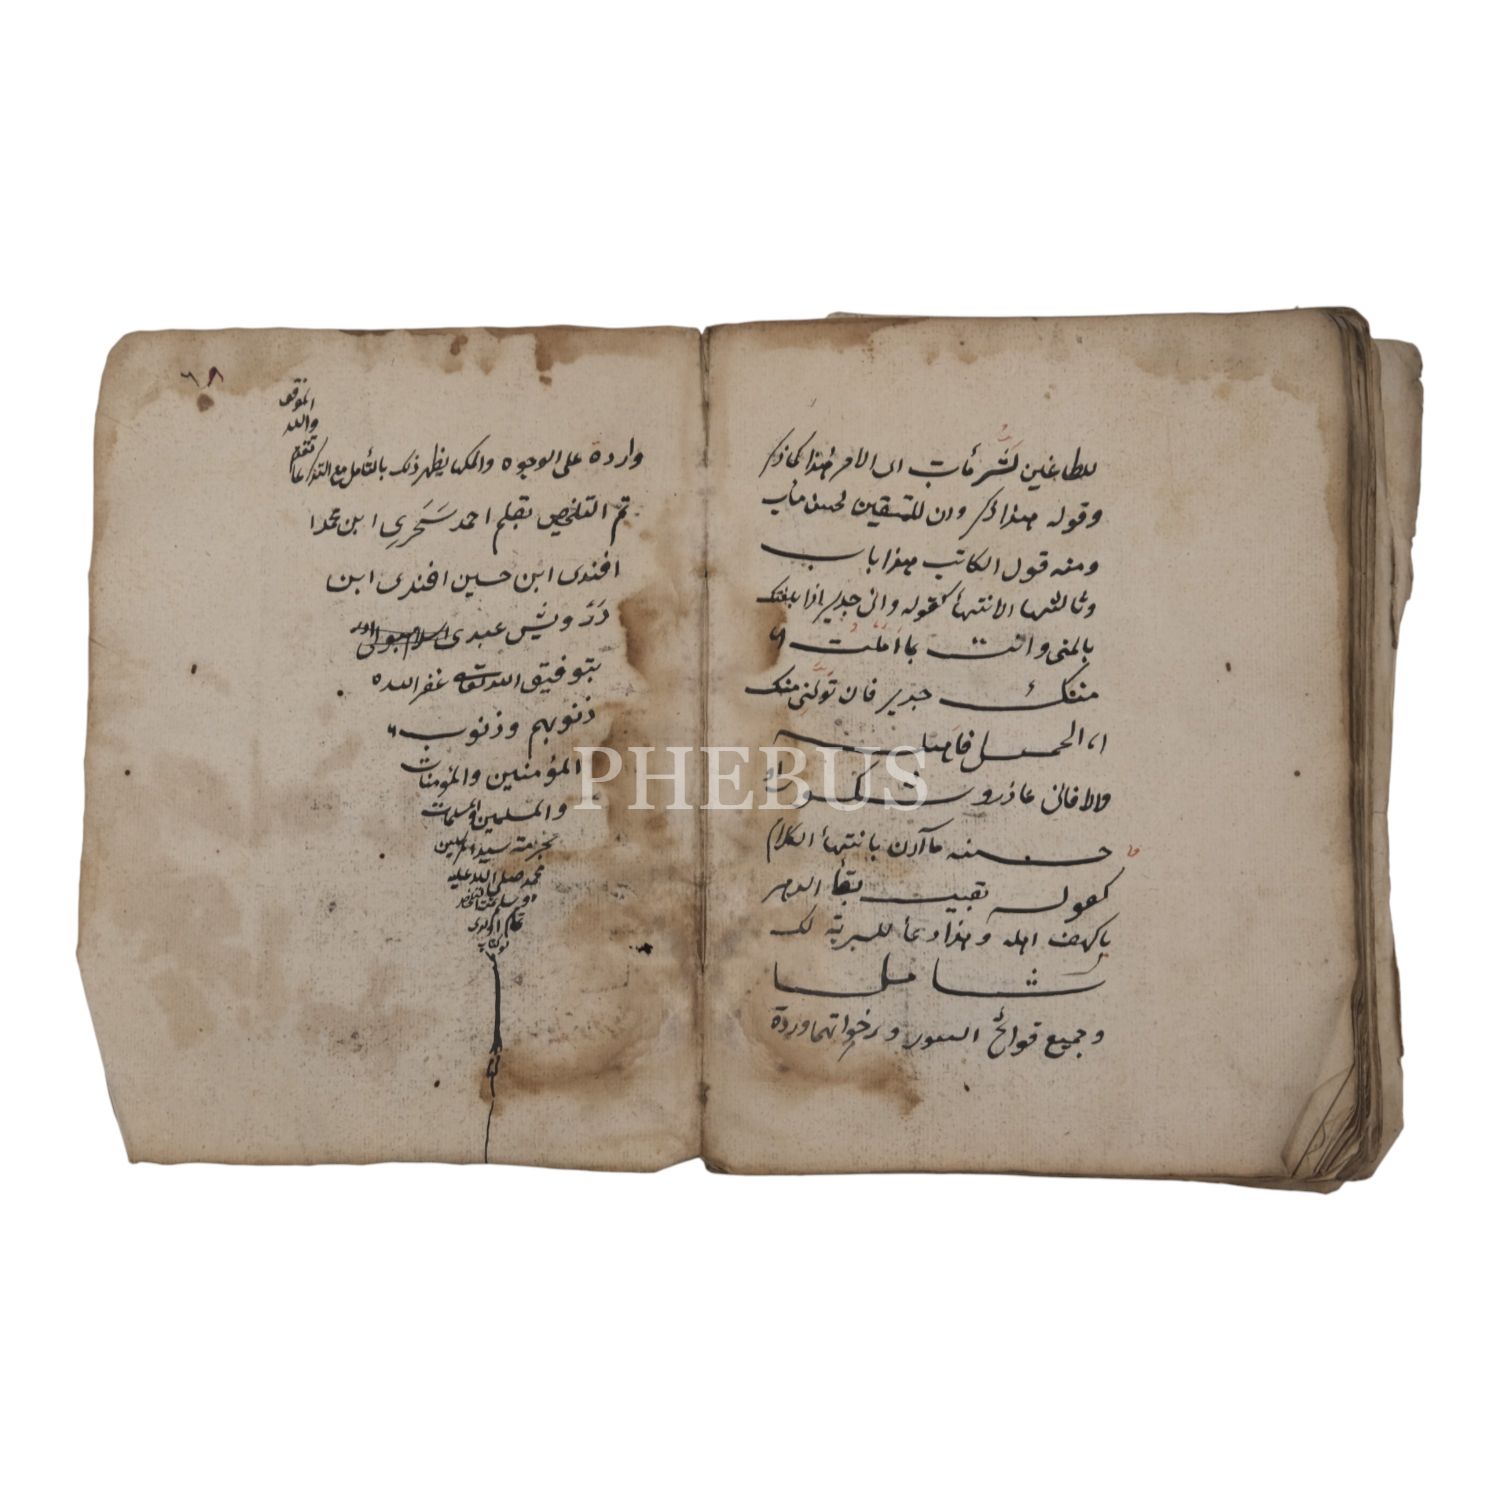 للطاغين لشر مآب اى الامر هذا كما ذكر
وقوله هذا ذكر وان للمتقين لحسن مآب
ومنه قول الكاتب هذا باب
وثالثها الانتهاء كقوله وانى جدير اذا بلغتك
بالمنى وانت بما املت
منك جدير فان تولنى منك
الجميل فاهله
والا فانى عاذر وشكور
حسنه ما آذن بانتهاء الكلام
كقوله بقيت بقاء الدهر
يا كهف اهله وهذا دعاء للبرية لك
شاملا
وجميع فواتح السور وخواتمها وردة
٦٨
واردة على الوجوه واكملها يظهر ذلك بالتأمل مع التذكر لما
تقدم
والله
الموفق
تم التلخيص بقلم احمد سحرى ابن محمد
افندى ابن حسين افندى ابن
درويش عبدى
بتوفيق الله تعالى غفر الله
ذنوبهم وذنوب
المؤمنين والمؤمنات
والمسلمين والمسلمات
بحرمة سيد المرسلين
محمد صلى الله عليه
وسلم
تمام
PHEBUS